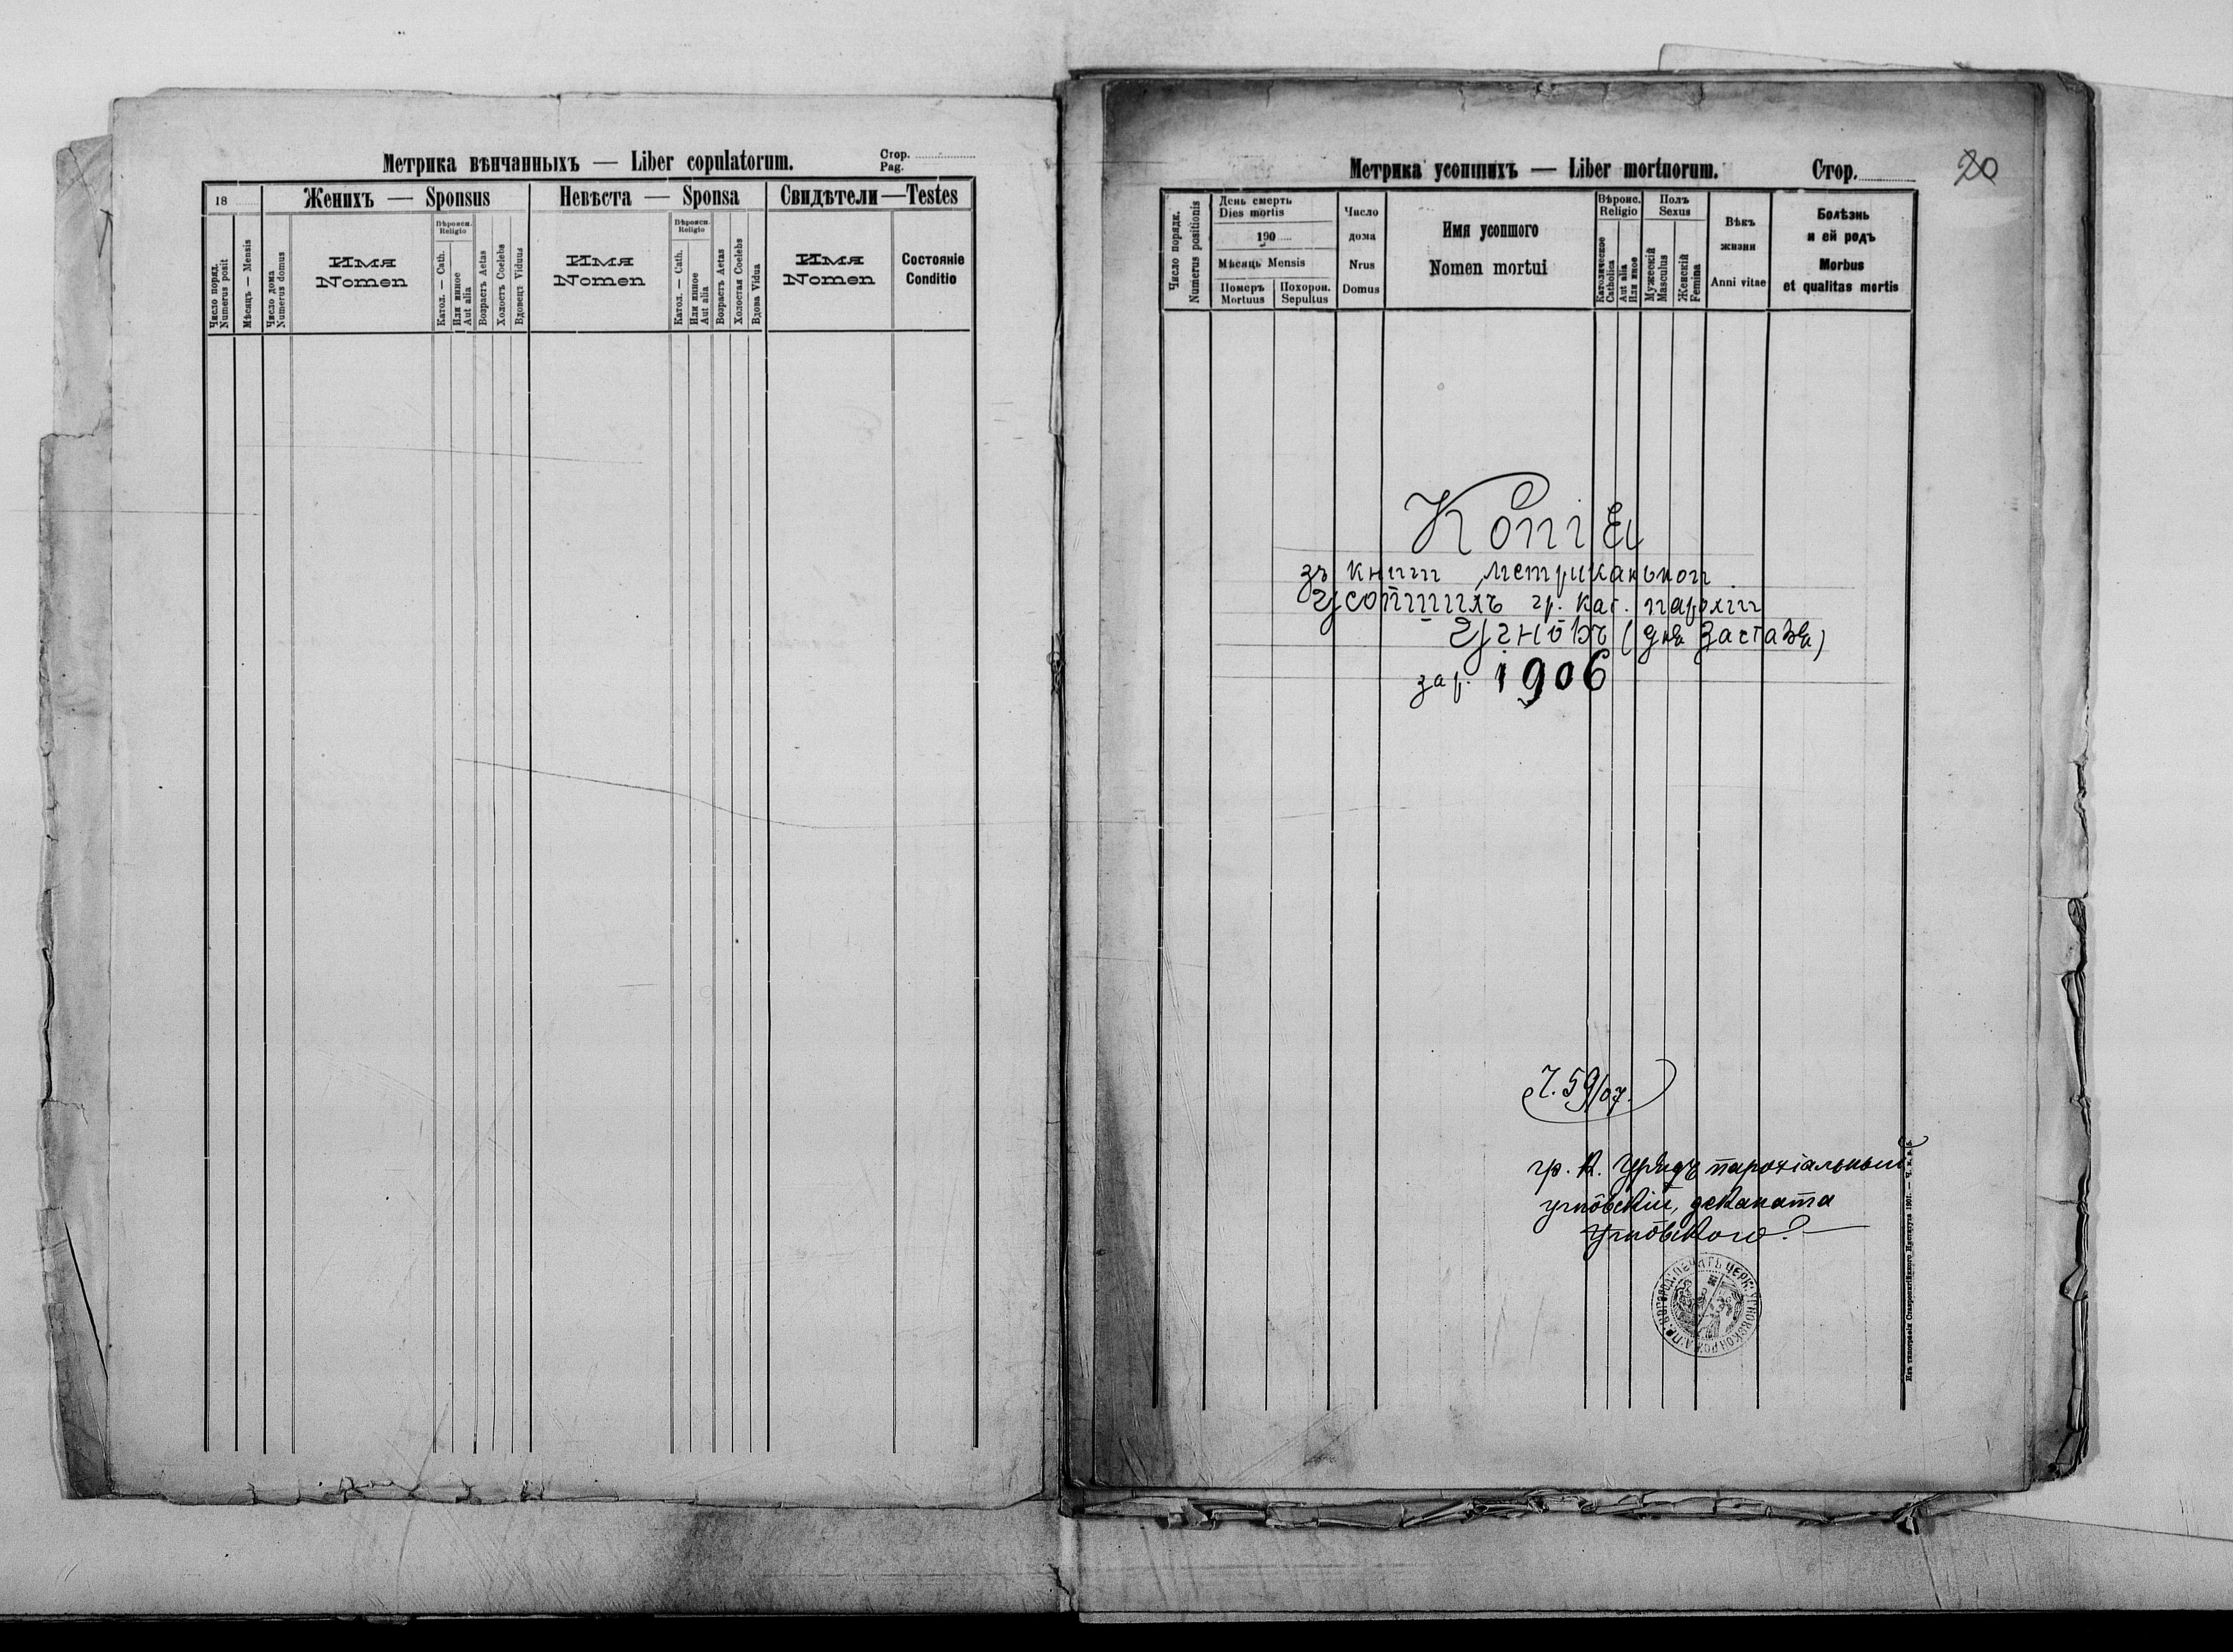 Метрика вѣнчанныхъ — Liber copulatorum.
Стор.
Pag.
18
Женихъ — Sponsus
Невѣста — Sponsa
Свидѣтели — Testes
Число поряд.
Numerus posit
Мѣсяцъ — Mensis
Число дома
Numerus domus
Имя
Nomen
Вѣроисп.
Religio
Катол. — Cath.
Или инное
Aut alia
Возрастъ Aetas
Холостъ Coelebs
Вдовецъ Viduus
Имя
Nomen
Вѣроисп.
Religio
Катол. — Cath.
Или инное
Aut alia
Возрастъ Aetas
Холостая Coelebs
Вдова Vidua
Имя
Nomen
Состояніе
Conditio
Метрика усопшихъ — Liber mortuorum.
Стор.
20
Число порядк.
Numerus positionis
День смерть
Dies mortis
190
Мѣсяць Mensis
Померъ
Mortuus
Похорон.
Sepultus
Число
дома
Nrus
Domus
Имя усопшого
Nomen mortui
Вѣроис.
Religio
Католическое
Catholica
Aut alia
Или иное
Полъ
Sexus
Мужескій
Masculus
Женскій
Femina
Вѣкъ
жизни
Anni vitae
Болѣзнь
и ей родъ
Morbus
et qualitas mortis
Копіѧ
зъ книги метрикальнои
Усопшихъ гр. кат. парохіи
Угнôвъ (днѧ Заставѧ)
за р. 1906
Ч. 59/07.
гр. к. Урядъ парохіальный
угнôвскій, деканата
Угнôвского
Изъ типографіи Ставропигійского Института 1901. — Ч.